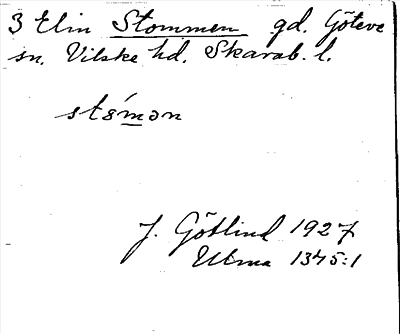 3 Elin Stommen gd. Göteve
sn. Vilske hd. Skarab. l.
stómən
J. Götlind 1927
Ulma 1345:1